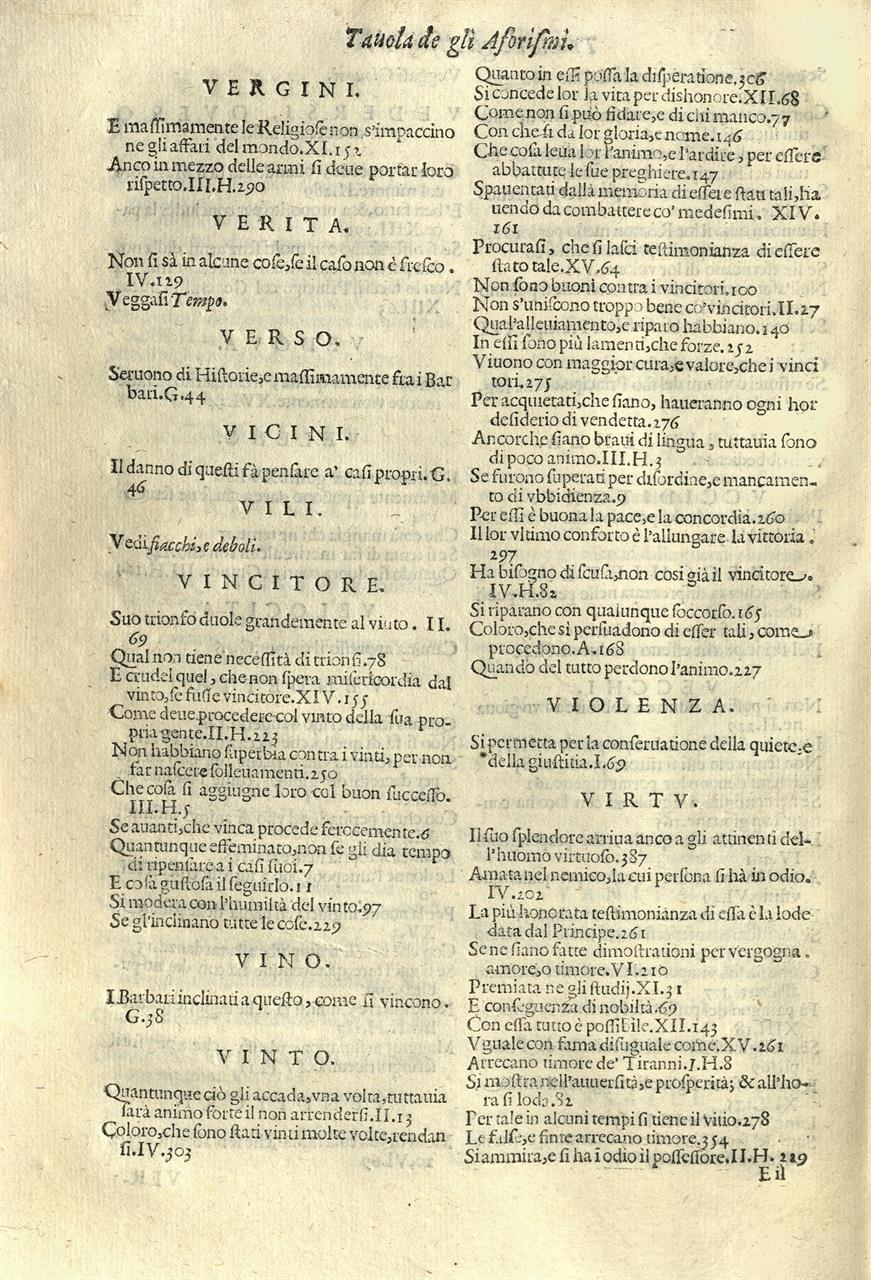 Tauola de gli Aforiſmi.
VERGINI.
E maſſimamente le Religioſe non s'impaccino
ne gli affari del mondo.XI.152
Anco in mezzo delle armi ſi deue portar loro
riſpetto.III.H.290
VERITA.
Non ſi sà in alcune coſe,ſe il caſo non è freſco.
IV.129
Veggaſi Tempo.
VERSO.
Seruono di Hiſtorie,e maſſimamente fra i Bar
bari.G.44
VICINI.
Il danno di queſti fà penſare a' caſi propri.G.
46
VILI.
Vedi fiacchi,e deboli.
VINCITORE.
Suo trionfo duole grandemente al vinto. II.
69
Qual non tiene neceſſità di trionfi.78
E crudel quel, che non ſpera miſericordia dal
vinto,ſe fuſſe vincitore.XIV.155
Come deue procedere col vinto della ſua pro-
pria gente.II.H.223
Non habbiano ſuperbia contra i vinti, per non
far naſcere ſolleuamenti.250
Che coſa ſi aggiugne loro col buon ſucceſſo.
III.H.5
Se auanti,che vinca procede ferocemente.6
Quantunque effeminato,non ſe gli dia tempo
di ripenſare a i caſi ſuoi.7
E coſa guſtoſa il ſeguirlo.11
Si modera con l'humiltà del vinto.97
Se gl'inclinano tutte le coſe.229
VINO.
I Barbari inclinati a queſto, come ſi vincono.
G.38
VINTO.
Quantunque ciò gli accada,vna volta,tuttauia
ſarà animo forte il non arrenderſi.II.13
Coloro,che ſono ſtati vinti molte volte,rendan
ſi.IV.303
Quanto in eſſi poſſa la diſperatione.306
Si concede lor la vita per dishonore.XII.68
Come non ſi può fidare,e di chi manco.77
Con che ſi da lor gloria,e nome.146
Che coſa leua lor l'animo,e l'ardire, per eſſere
abbattute le ſue preghiere.147
Spauentati dalla memoria di eſſere ſtati tali,ha
uendo da combattere co' medeſimi. XIV.
161
Procuraſi, che ſi laſci teſtimonianza di eſſere
ſtato tale.XV.64
Non ſono buoni contra i vincitori.100
Non s'uniſcono troppo bene co'vincitori.II.27
Qual'alleuiamento,e riparo habbiano.140
In eſſi ſono più lamenti,che forze.252
Viuono con maggior cura,e valore,che i vinci
tori.275
Per acquietati,che ſiano, haueranno ogni hor
deſiderio di vendetta.276
Ancorche ſiano braui di lingua, tuttauia ſono
di poco animo.III.H.3
Se furono ſuperati per diſordine,e mancamen-
to di vbbidienza.9
Per eſſi è buona la pace,e la concordia.260
Il lor vltimo conforto è l'allungare la vittoria.
297
Ha biſogno di ſcuſa,non coſi già il vincitore.
IV.H.82
Si riparano con qualunque ſoccorſo.165
Coloro,che ſi perſuadono di eſſer tali, come
procedono.A.168
Quando del tutto perdono l'animo.227
VIOLENZA.
Si permetta per la conſeruatione della quiete,e
della giuſtitia.I.69
VIRTV.
Il ſuo ſplendore arriua anco a gli attinenti del-
l'huomo virtuoſo.387
Amata nel nemico,la cui perſona ſi hà in odio.
IV.202
La più honorata teſtimonianza di eſſa è la lode
data dal Principe.261
Se ne ſiano fatte dimoſtrationi per vergogna.
amore,o timore.VI.210
Premiata ne gli ſtudij.XI.31
E conſeguenza di nobiltà.69
Con eſſa tutto è poſſibile.XII.143
Vguale con fama diſuguale come.XV.261
Arrecano timore de' Tiranni.I.H.8
Si moſtra nell'auuerſità,e proſperità; & all'ho-
ra ſi loda.82
Per tale in alcuni tempi ſi tiene il vitio.278
Le falſe,e finte arrecano timore.354
Si ammira,e ſi ha i odio il poſſeſſore.II.H. 229
E il